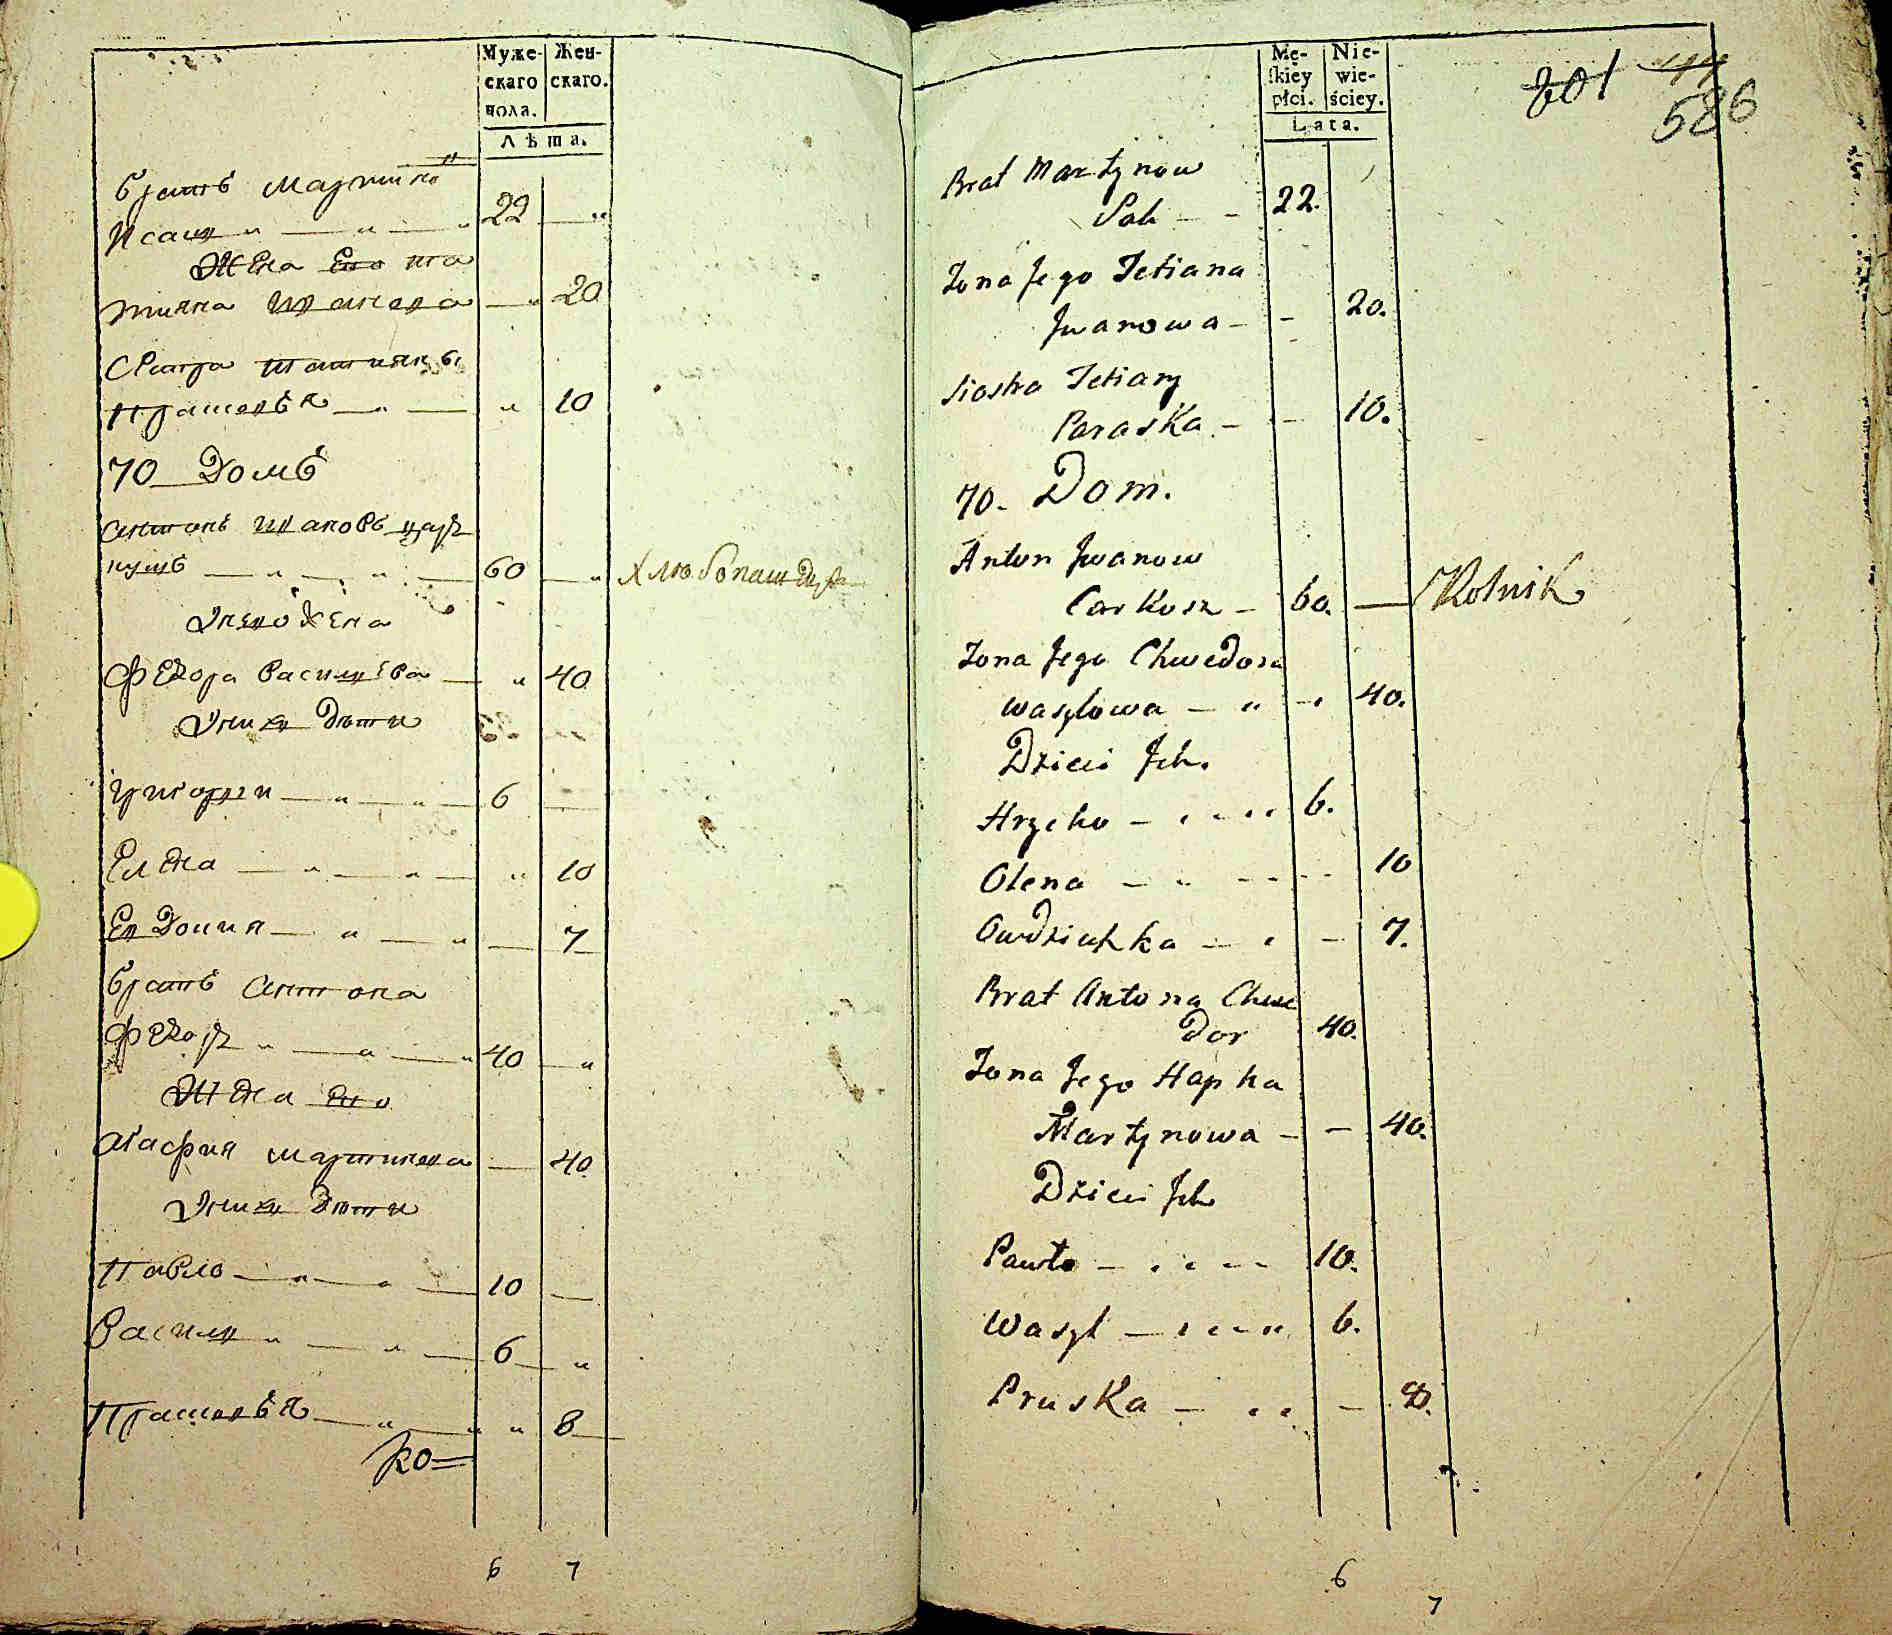 Муже-
скаго
пола.
Жен-
скаго.
Лѣта.
братъ Мартина
Исаия 22
Жена Его та
тияна иванова 20
Сестра татияны
Прасковея 10
70 Домъ
Антонъ ивановъ цар
кушъ 60 Хлюбопашецъ
Унево Жена
Федора василева 40
Уних Дети
григории 6
Елена 10
Евдокия 7
братъ Антона
Федор 40
Жена Ево
Агафия мартинова 40
Уних Дети
Павло 10
Васили 6
Прасковея 8
6 7
Mę-
skiey
płci.
Nie-
wie-
ściey.
Lata.
801
586
Brat Martynow
22.
Żona Jego Tetiana
Jwanowa 20.
Siostra Tetiany
Paraska 10.
70. Dom.
Anton Jwanow
Carkosz 60. Rolnik
Żona Jego Chwedora
Wasylowa 40.
Dzieci Jch.
Hryćko 6.
Olena 10
Owdziuszka 7.
Brat Antona Chwe
dor 40.
Żona Jego Hapka
Martynowa 40.
Dzieci Jch
Pawło 10.
Wasyl 6.
Pruska 8.
6
7